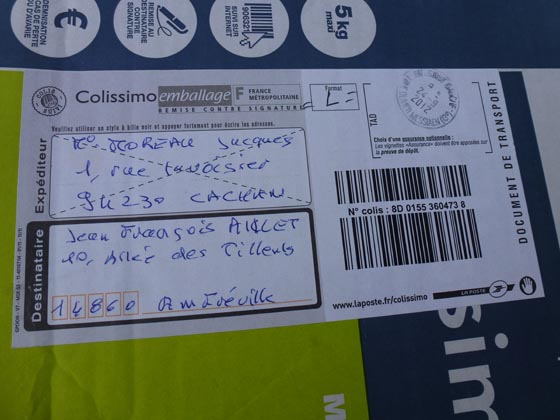 INDEMNISATION
EN CAS DE PERTE
OU D'AVARIE
€
REMISE AU
DESTINATAIRE
CONTRE
SIGNATURE
SUIVI SUR
INTERNET
5 kg
maxi
Colissimo emballage F FRANCE
MÉTROPOLITAINE
REMISE CONTRE SIGNATURE
Format
L
2012
Veuillez utiliser un stylo à bille noir et appuyer fortement pour écrire les adresses.
Expéditeur
MOREAU Jacques
1, rue
94230 CACHAN
Destinataire
Jean François
10, Allée des Tilleuls
14860 Amfréville
VAO
Choix d'une assurance optionnelle :
Les vignettes «Assurance» doivent être apposées sur
la preuve de dépôt.
N° colis : 8D 0155 360473 8
www.laposte.fr/colissimo
LA POSTE
DOCUMENT DE TRANSPORT
sim
M